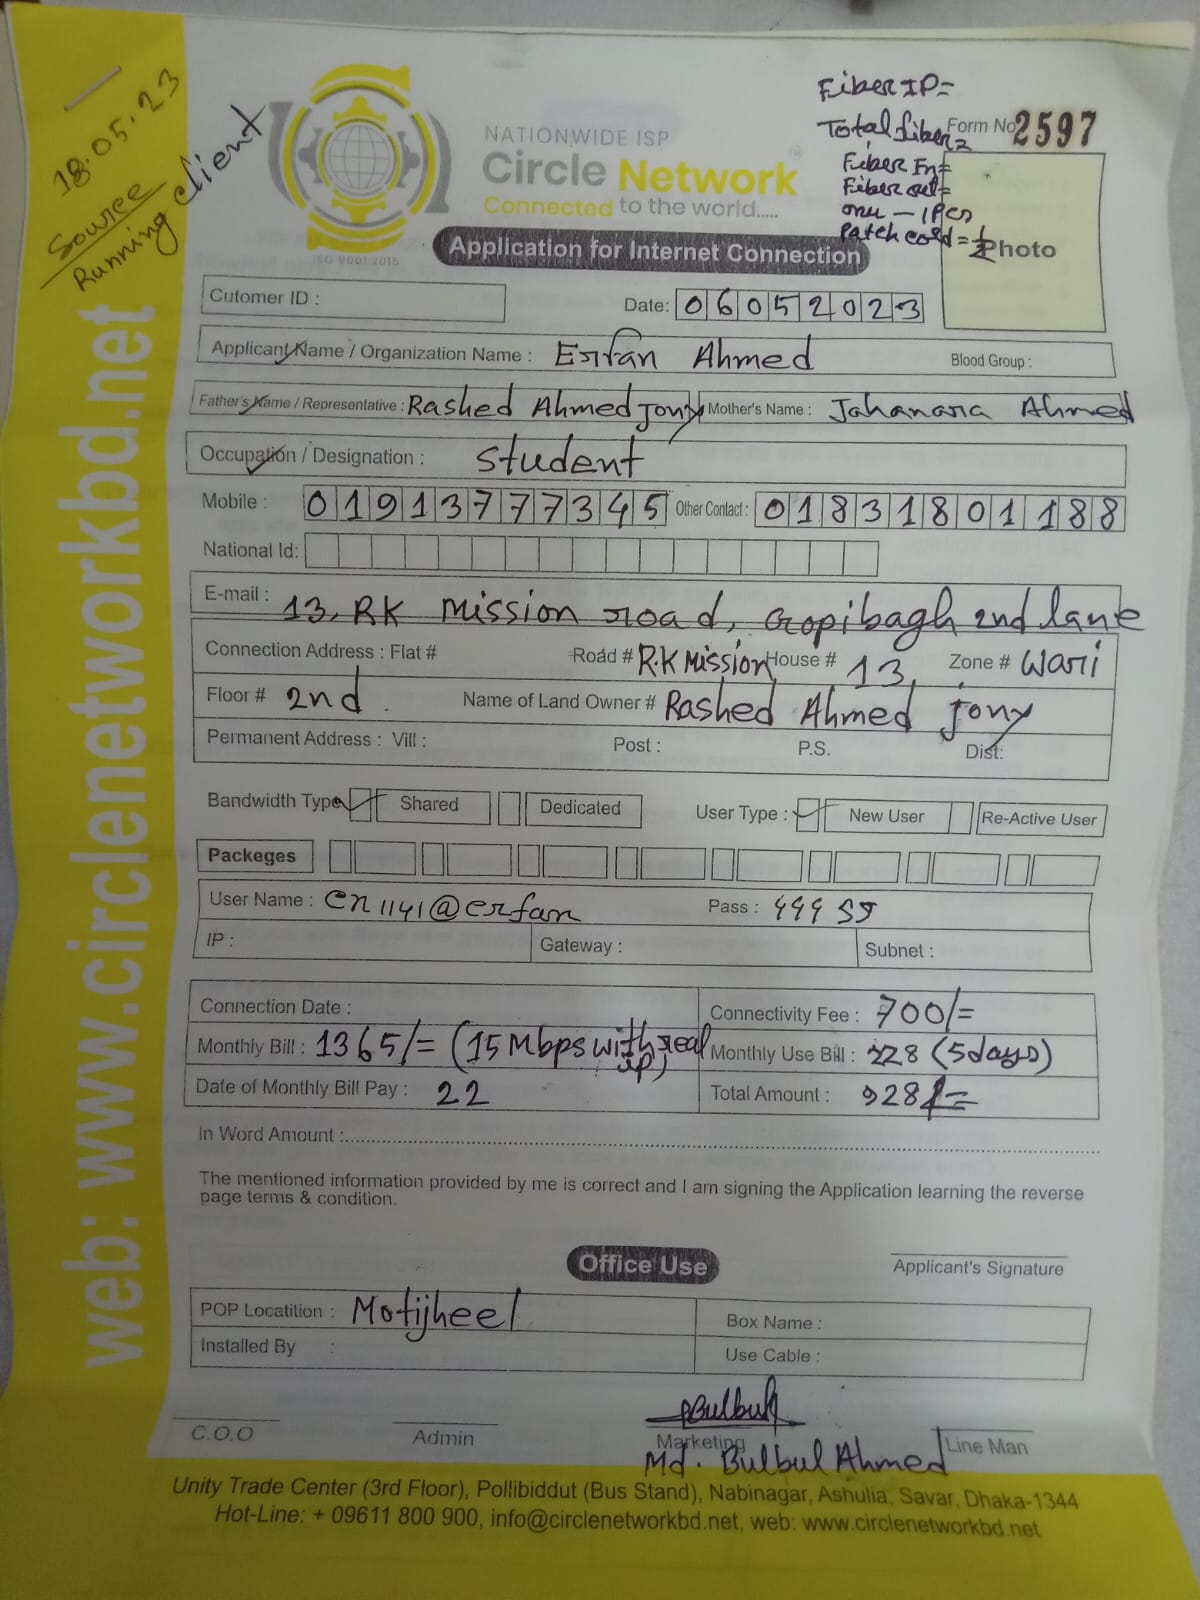 18.05.23
Source
Running client
web: www.circlenetworkbd.net
NATIONWIDE ISP
Circle Network
Connected to the world.....
ISO 9001:2015
Fiber IP=
Total fiber=
Form No 2597
Fiber In=
Fiber out=
onu - 1 Pcs
Patch cord =
Photo
Application for Internet Connection
Cutomer ID :
Date: 06052023
Applicant Name / Organization Name : Erfan Ahmed Blood Group :
Father's Name / Representative : Rashed Ahmed Jony Mother's Name : Jahanara Ahmed
Occupation / Designation : Student
Mobile : 01913777345 Other Contact : 01831801188
National Id:
E-mail : 13, RK Mission road, Gopibagh 2nd lane
Connection Address : Flat # Road # R.K Mission House # 13, Zone # Wari
Floor # 2nd. Name of Land Owner # Rashed Ahmed Jony
Permanent Address : Vill : Post : P.S. Dist:
Bandwidth Type Shared Dedicated User Type : New User Re-Active User
Packeges
User Name : cn1141@erfan Pass :
IP : Gateway : Subnet :
Connection Date : Connectivity Fee : 700/=
Monthly Bill : 1365/= (15 Mbps with real ip) Monthly Use Bill : 228 (5days)
Date of Monthly Bill Pay : 22 Total Amount : 928/=
In Word Amount :
The mentioned information provided by me is correct and I am signing the Application learning the reverse
page terms & condition.
Office Use
Applicant's Signature
POP Locatition : Motijheel Box Name :
Installed By : Use Cable :
Bulbul
C.O.O Admin Marketing Line Man
Md. Bulbul Ahmed
Unity Trade Center (3rd Floor), Pollibiddut (Bus Stand), Nabinagar, Ashulia, Savar, Dhaka-1344
Hot-Line: + 09611 800 900, info@circlenetworkbd.net, web: www.circlenetworkbd.net